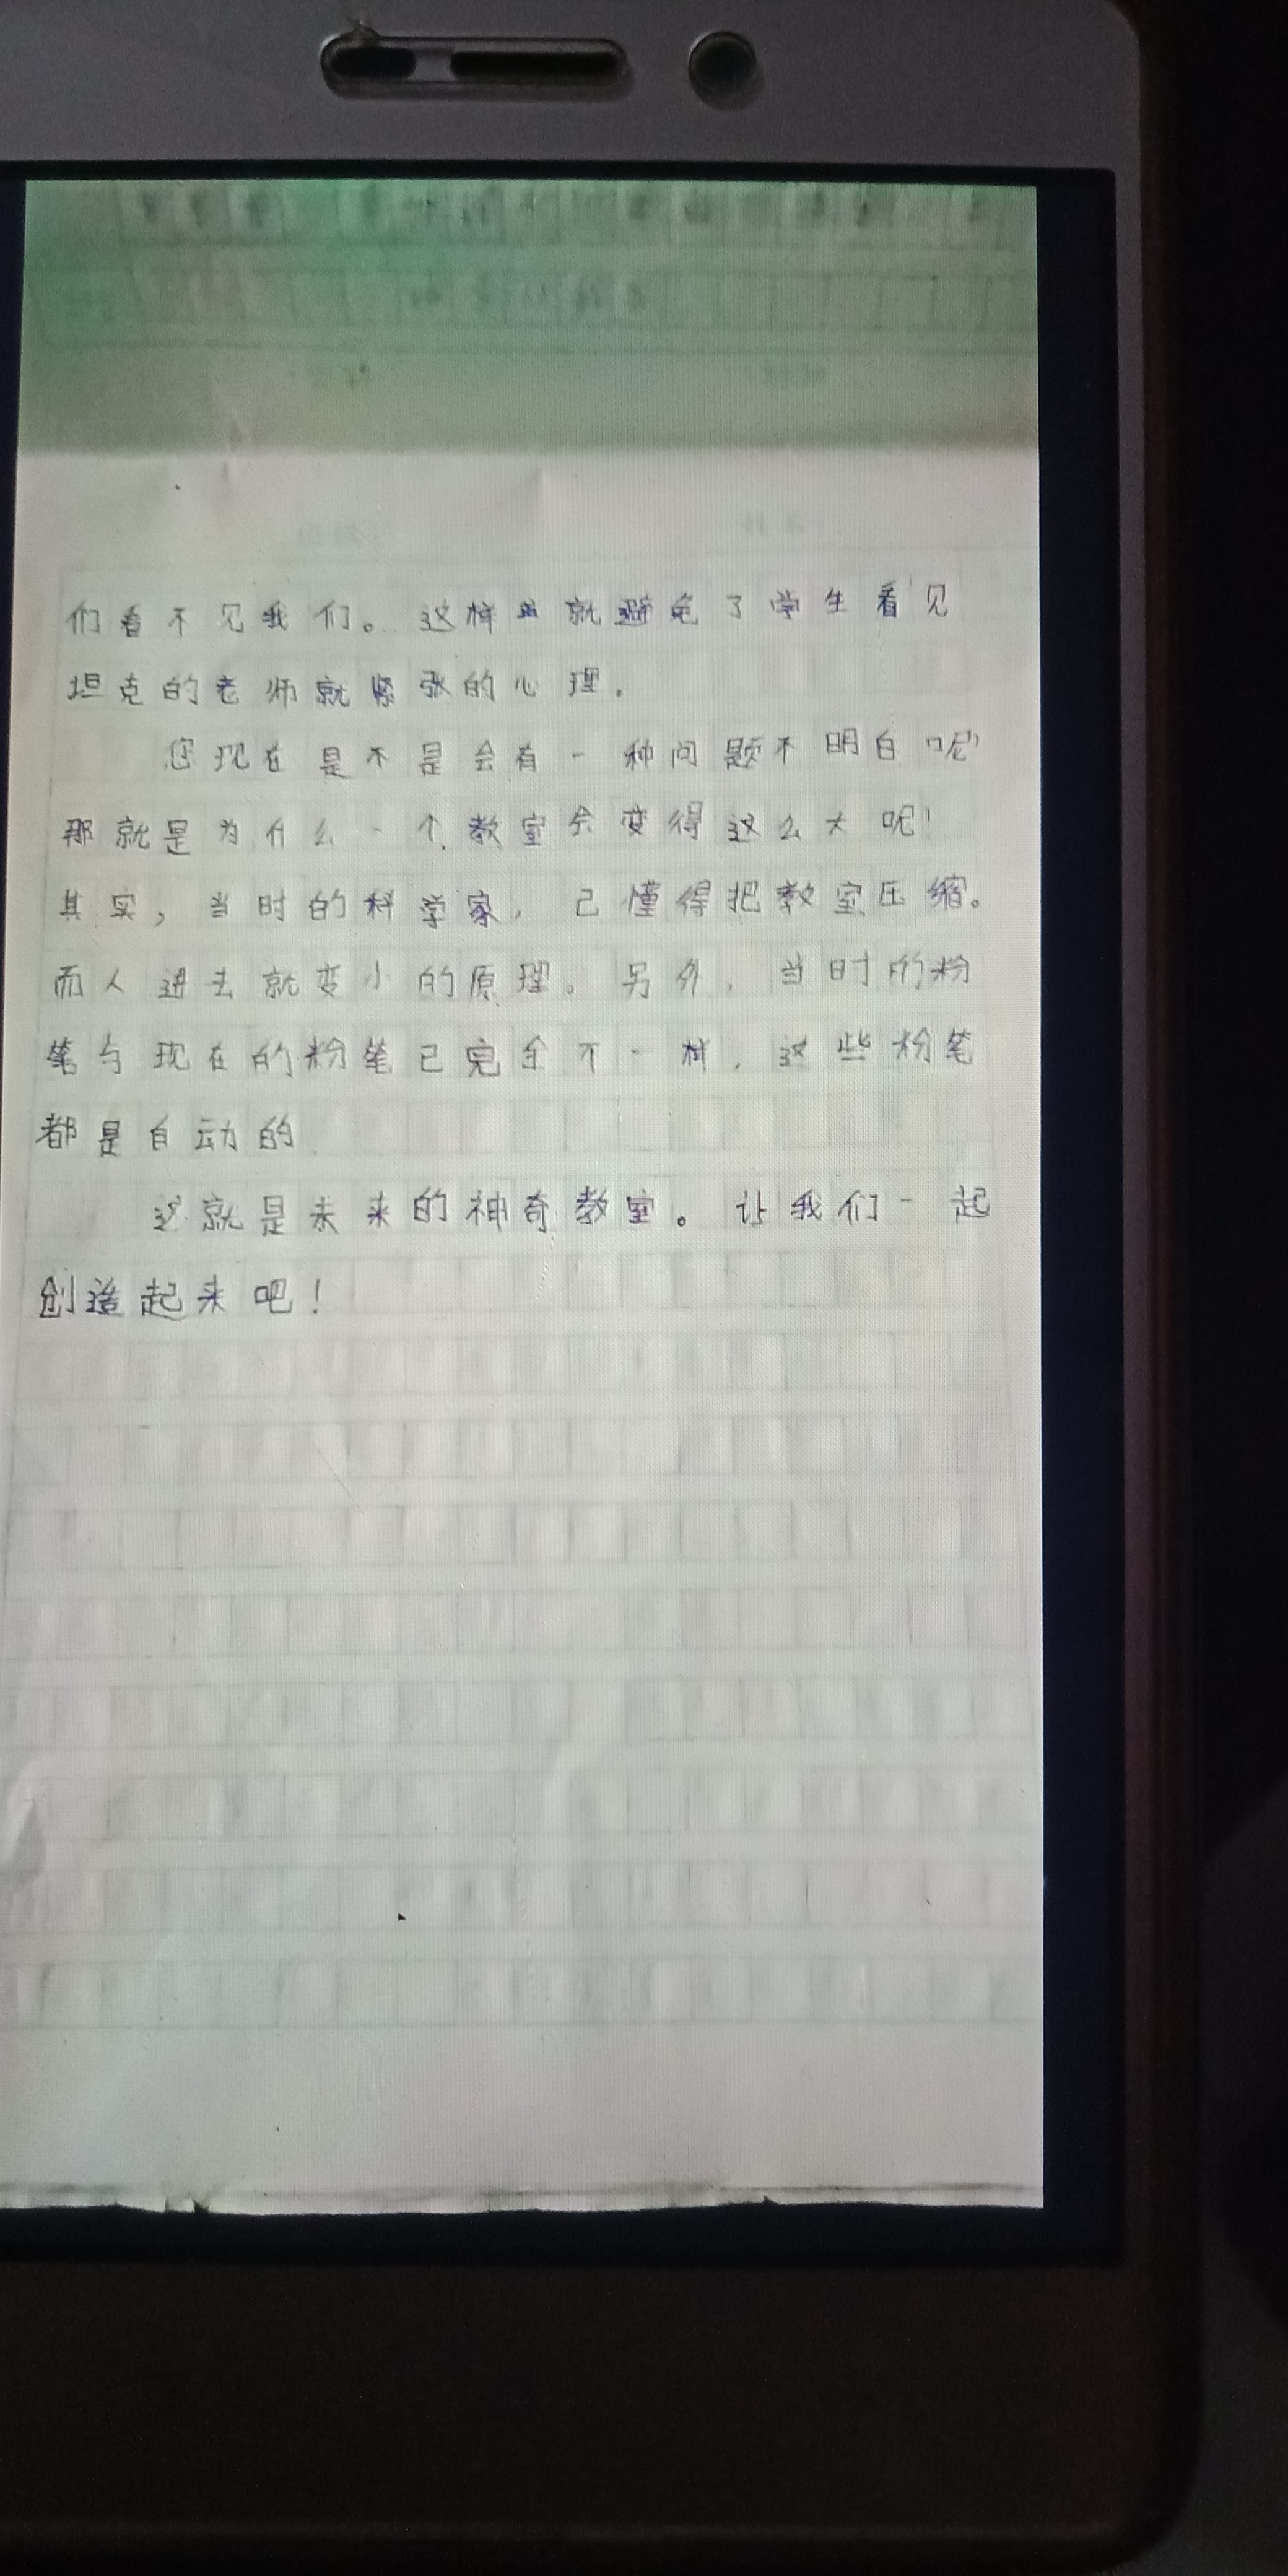 们看不见我们。这样就避免了学生看见
坦克的老师就紧张的心理。
您现在是不是会有一种问题不明白呢
那就是为什么一个教室会变得这么大呢！
其实，当时的科学家，已懂得把教室压缩。
而人进去就变小的原理。另外，当时的粉
笔与现在的粉笔已完全不一样，这些粉笔
都是自动的
这就是未来的神奇教室。让我们一起
创造起来吧！